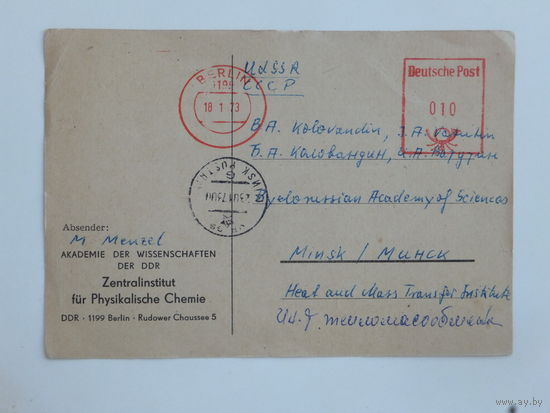 UdSSR
СССР
BERLIN
1199
18.1.73
Deutsche Post
010
B.A. Kolovandin,
Б.А. Коловандин,
Byelorussian Academy of Sciences
Minsk / Минск
Heat and Mass Transfer Institute
Absender:
M. Menzel
AKADEMIE DER WISSENSCHAFTEN
DER DDR
Zentralinstitut
für Physikalische Chemie
DDR · 1199 Berlin · Rudower Chaussee 5
www.ay.by